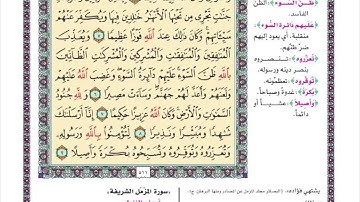 جَنَّٰتٍ تَجْرِى مِن تَحْتِهَا ٱلْأَنْهَٰرُ خَٰلِدِينَ فِيهَا وَيُكَفِّرَ عَنْهُمْ
سَيِّـَٔاتِهِمْ وَكَانَ ذَٰلِكَ عِندَ ٱللَّهِ فَوْزًا عَظِيمًا ٥ وَيُعَذِّبَ
ٱلْمُنَٰفِقِينَ وَٱلْمُنَٰفِقَٰتِ وَٱلْمُشْرِكِينَ وَٱلْمُشْرِكَٰتِ ٱلظَّآنِّينَ
بِٱللَّهِ ظَنَّ ٱلسَّوْءِ عَلَيْهِمْ دَآئِرَةُ ٱلسَّوْءِ وَغَضِبَ ٱللَّهُ عَلَيْهِمْ
وَلَعَنَهُمْ وَأَعَدَّ لَهُمْ جَهَنَّمَ وَسَآءَتْ مَصِيرًا ٦ وَلِلَّهِ جُنُودُ
ٱلسَّمَٰوَٰتِ وَٱلْأَرْضِ وَكَانَ ٱللَّهُ عَزِيزًا حَكِيمًا ٧ إِنَّآ أَرْسَلْنَٰكَ
شَٰهِدًا وَمُبَشِّرًا وَنَذِيرًا ٨ لِّتُؤْمِنُوا۟ بِٱللَّهِ وَرَسُولِهِۦ
وَتُعَزِّرُوهُ وَتُوَقِّرُوهُ وَتُسَبِّحُوهُ بُكْرَةً وَأَصِيلًا ٩
٥١١
﴿ظَنَّ السَّوْءِ﴾ الظن
الفاسد.
﴿عليهم دائرة السَّوْء﴾
منقلبة، أي يعود إليهم
ضرّ ظنّهم.
﴿تعزروه﴾ تنصروه
بنصر دينه ورسوله.
﴿توقروه﴾ تعظموه.
﴿بكرة﴾ غدوةً وصباحاً.
﴿وأصيلاً﴾ عشياً أو
دائماً.
يشتهي فؤاده.
سورة المزمل الشريفة،